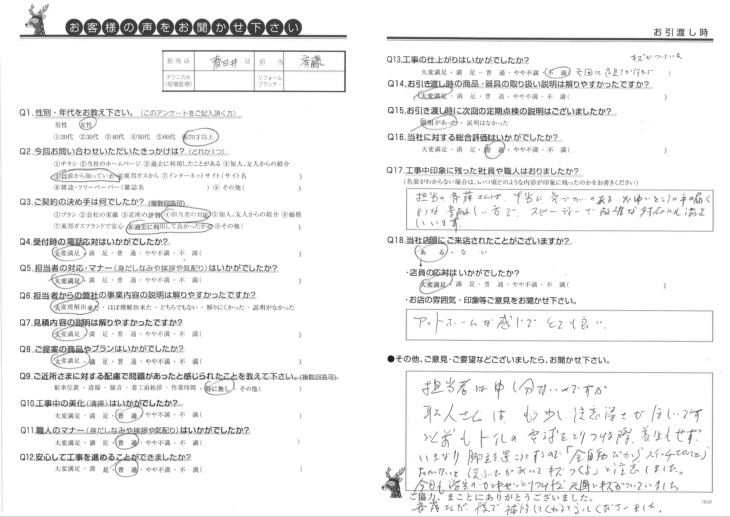 お客様の声をお聞かせ下さい
担当店 春日井店 担当 斉藤
テクニカル(現場監督) リフォームプランナー
Q1.性別・年代をお教え下さい。(このアンケートをご記入頂く方)
男性 女性
①20代 ②30代 ③40代 ④50代 ⑤60代 ⑥70才以上
Q2.今回お問い合わせいただいたきっかけは?(どれか1つ)
①チラシ ②当社のホームページ ③過去に利用したことがある ④知人、友人からの紹介
⑤以前から知っていた ⑥東邦ガスから ⑦インターネットサイト(サイト名 )
⑧雑誌・フリーペーパー(雑誌名 ) ⑨その他( )
Q3.ご契約の決め手は何でしたか?(複数回答可)
①プラン ②会社の実績 ③近所の評判 ④担当者の対応 ⑤知人、友人からの紹介 ⑥価格
⑦東邦ガスブランドで安心 ⑧過去に利用して良かったから ⑨その他( )
Q4.受付時の電話応対はいかがでしたか?
大変満足・満 足・普 通・やや不満・不 満( )
Q5.担当者の対応・マナー(身だしなみや挨拶や気配り)はいかがでしたか?
大変満足・満 足・普 通・やや不満・不 満( )
Q6.担当者からの弊社の事業内容の説明は解りやすかったですか?
大変理解出来た・ほぼ理解出来た・どちらでもない・解りにくかった・説明がなかった
Q7.見積内容の説明は解りやすかったですか?
大変満足・満 足・普 通・やや不満・不 満( )
Q8.ご提案の商品やプランはいかがでしたか?
大変満足・満 足・普 通・やや不満・不 満( )
Q9.ご近所さまに対する配慮で問題があったと感じられたことを教えて下さい。(複数回答可)
駐車位置・清掃・騒音・着工前挨拶・作業時間・特に無し・その他( )
Q10.工事中の美化(清掃)はいかがでしたか?
大変満足・満 足・普 通・やや不満・不 満( )
Q11.職人のマナー(身だしなみや挨拶や気配り)はいかがでしたか?
大変満足・満 足・普 通・やや不満・不 満( )
Q12.安心して工事を進めることができましたか?
大変満足・満 足・普 通・やや不満・不 満( )
お引渡し時
Q13.工事の仕上がりはいかがでしたか?
キズがついた
大変満足・満 足・普 通・やや不満・不 満(
Q14.お引渡し時の商品・器具の取り扱い説明は解りやすかったですか?
大変満足・満 足・普 通・やや不満・不 満( )
Q15.お引渡し時に次回の定期点検の説明はございましたか?
説明があった・説明はなかった
Q16.当社に対する総合評価はいかがでしたか?
大変満足・満 足・普 通・やや不満・不 満( )
Q17.工事中印象に残った社員や職人はおりましたか?
(名前がわからない場合は、いつ頃どのような内容が印象に残ったのかをお書きください)
担当の斉藤さんは、本当に気づかいのある かゆいところの手の届く
ような素晴しい方で、スピーディーで 的確な対応にも満足
しています。
Q18.当社店頭にご来店されたことがございますか?
あ る・な い
・店員の応対はいかがでしたか?
大変満足・満 足・普 通・やや不満・不 満( )
・お店の雰囲気・印象等ご意見をお聞かせ下さい。
アットホームな感じでとても良い。
●その他、ご意見・ご要望などございましたら、お聞かせ下さい。
担当者は申し分ないのですが
職人さんは もう少し注意深さがほしいです
以前もトイレの便座をとりつける際、養生もせず、
いきなり脚立を
と注意しました。
キズがついていました
ご協力、まことにありがとうございました。
1604